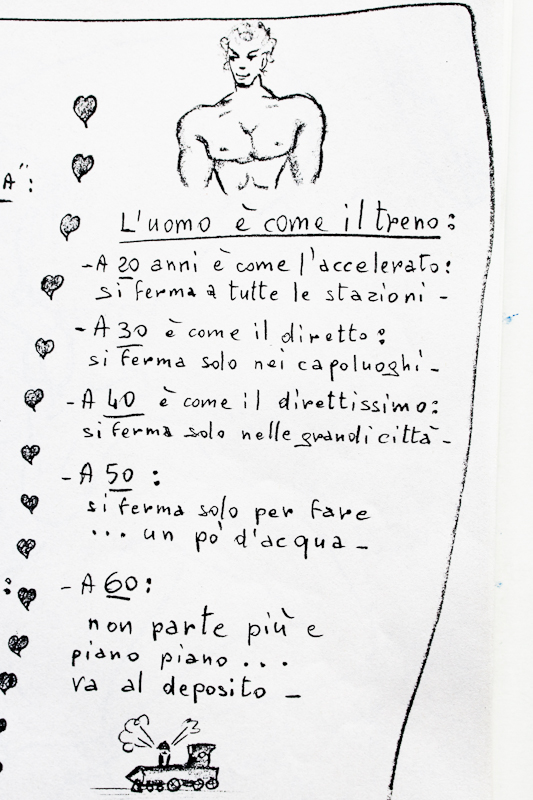 A":
L'uomo è come il treno:
- A 20 anni è come l'accelerato:
si ferma a tutte le stazioni -
- A 30 è come il diretto:
si ferma solo nei capoluoghi -
- A 40 è come il direttissimo:
si ferma solo nelle grandi città -
- A 50 :
si ferma solo per fare
... un pò d'acqua -
- A 60:
non parte più e
piano piano ...
va al deposito -
: